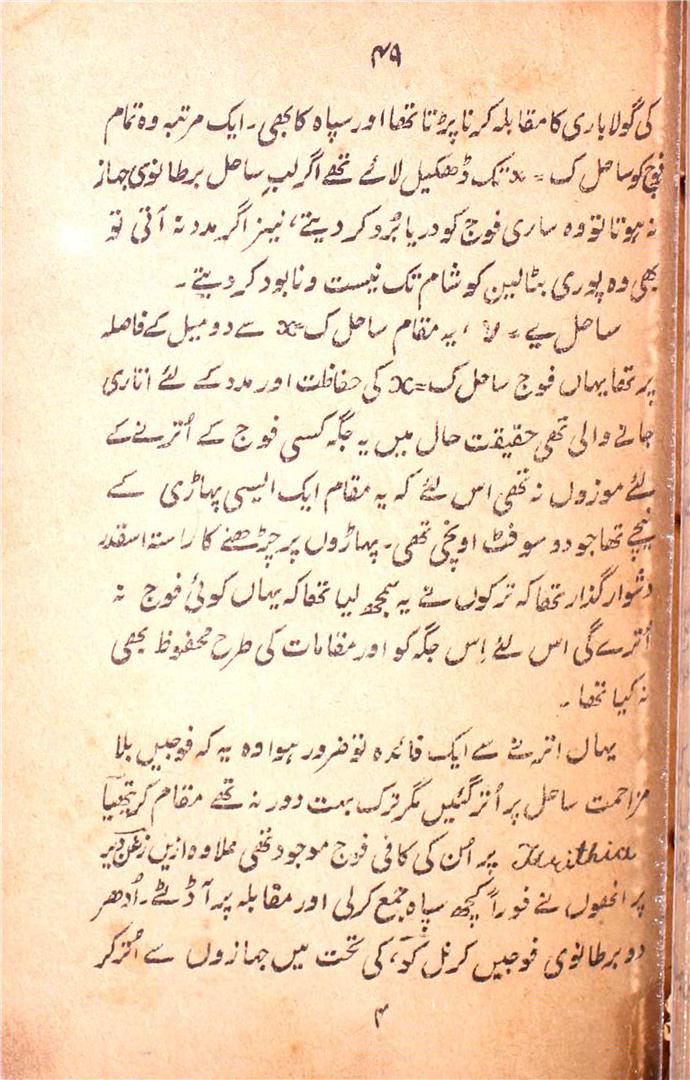 ۴۹
کی گولا باری کا مقابلہ کرنا پڑتا تھا اور سپاہ کا بھی۔ ایک مرتبہ وہ تمام
فوج کو ساحل ک = x تک ڈھکیل لائے تھے اگر لبِ ساحل برطانوی جہاز
نہ ہوتا تو وہ ساری فوج کو دریا بُرد کر دیتے، نیز اگر مدد نہ آتی تو
بھی وہ پوری بٹالین کو شام تک نیست و نابود کر دیتے۔
ساحل یے = y ، یہ مقام ساحل ک = x سے دو میل کے فاصلہ
پر تھا یہاں فوج ساحل ک = x کی حفاظت اور مدد کے لئے اتاری
جانے والی تھی حقیقت حال میں یہ جگہ کسی فوج کے اُترنے کے
لئے موزوں نہ تھی اس لئے کہ یہ مقام ایک ایسی پہاڑی کے
نیچے تھا جو دو سو فٹ اونچی تھی۔ پہاڑوں پر چڑھنے کا راستہ اسقدر
دشوار گذار تھا کہ ترکوں نے یہ سمجھ لیا تھا کہ یہاں کوئی فوج نہ
اُترے گی اس لئے اِس جگہ کو اور مقامات کی طرح محفوظ بھی
نہ کیا تھا۔
یہاں اترنے سے ایک فائدہ تو ضرور ہوا وہ یہ کہ فوجیں بلا
مزاحمت ساحل پر اُتر گئیں مگر ترک بہت دور نہ تھے مقام کریتھیا
Krithia پر اُن کی کافی فوج موجود تھی علاوہ ازیں زغن دیر
پر انھوں نے فوراً کچھ سپاہ جمع کر لی اور مقابلہ پر آ ڈٹے۔ اُدھر
دو برطانوی فوجیں کرنل کو، کی تحت میں جہازوں سے اُتر کر
۴